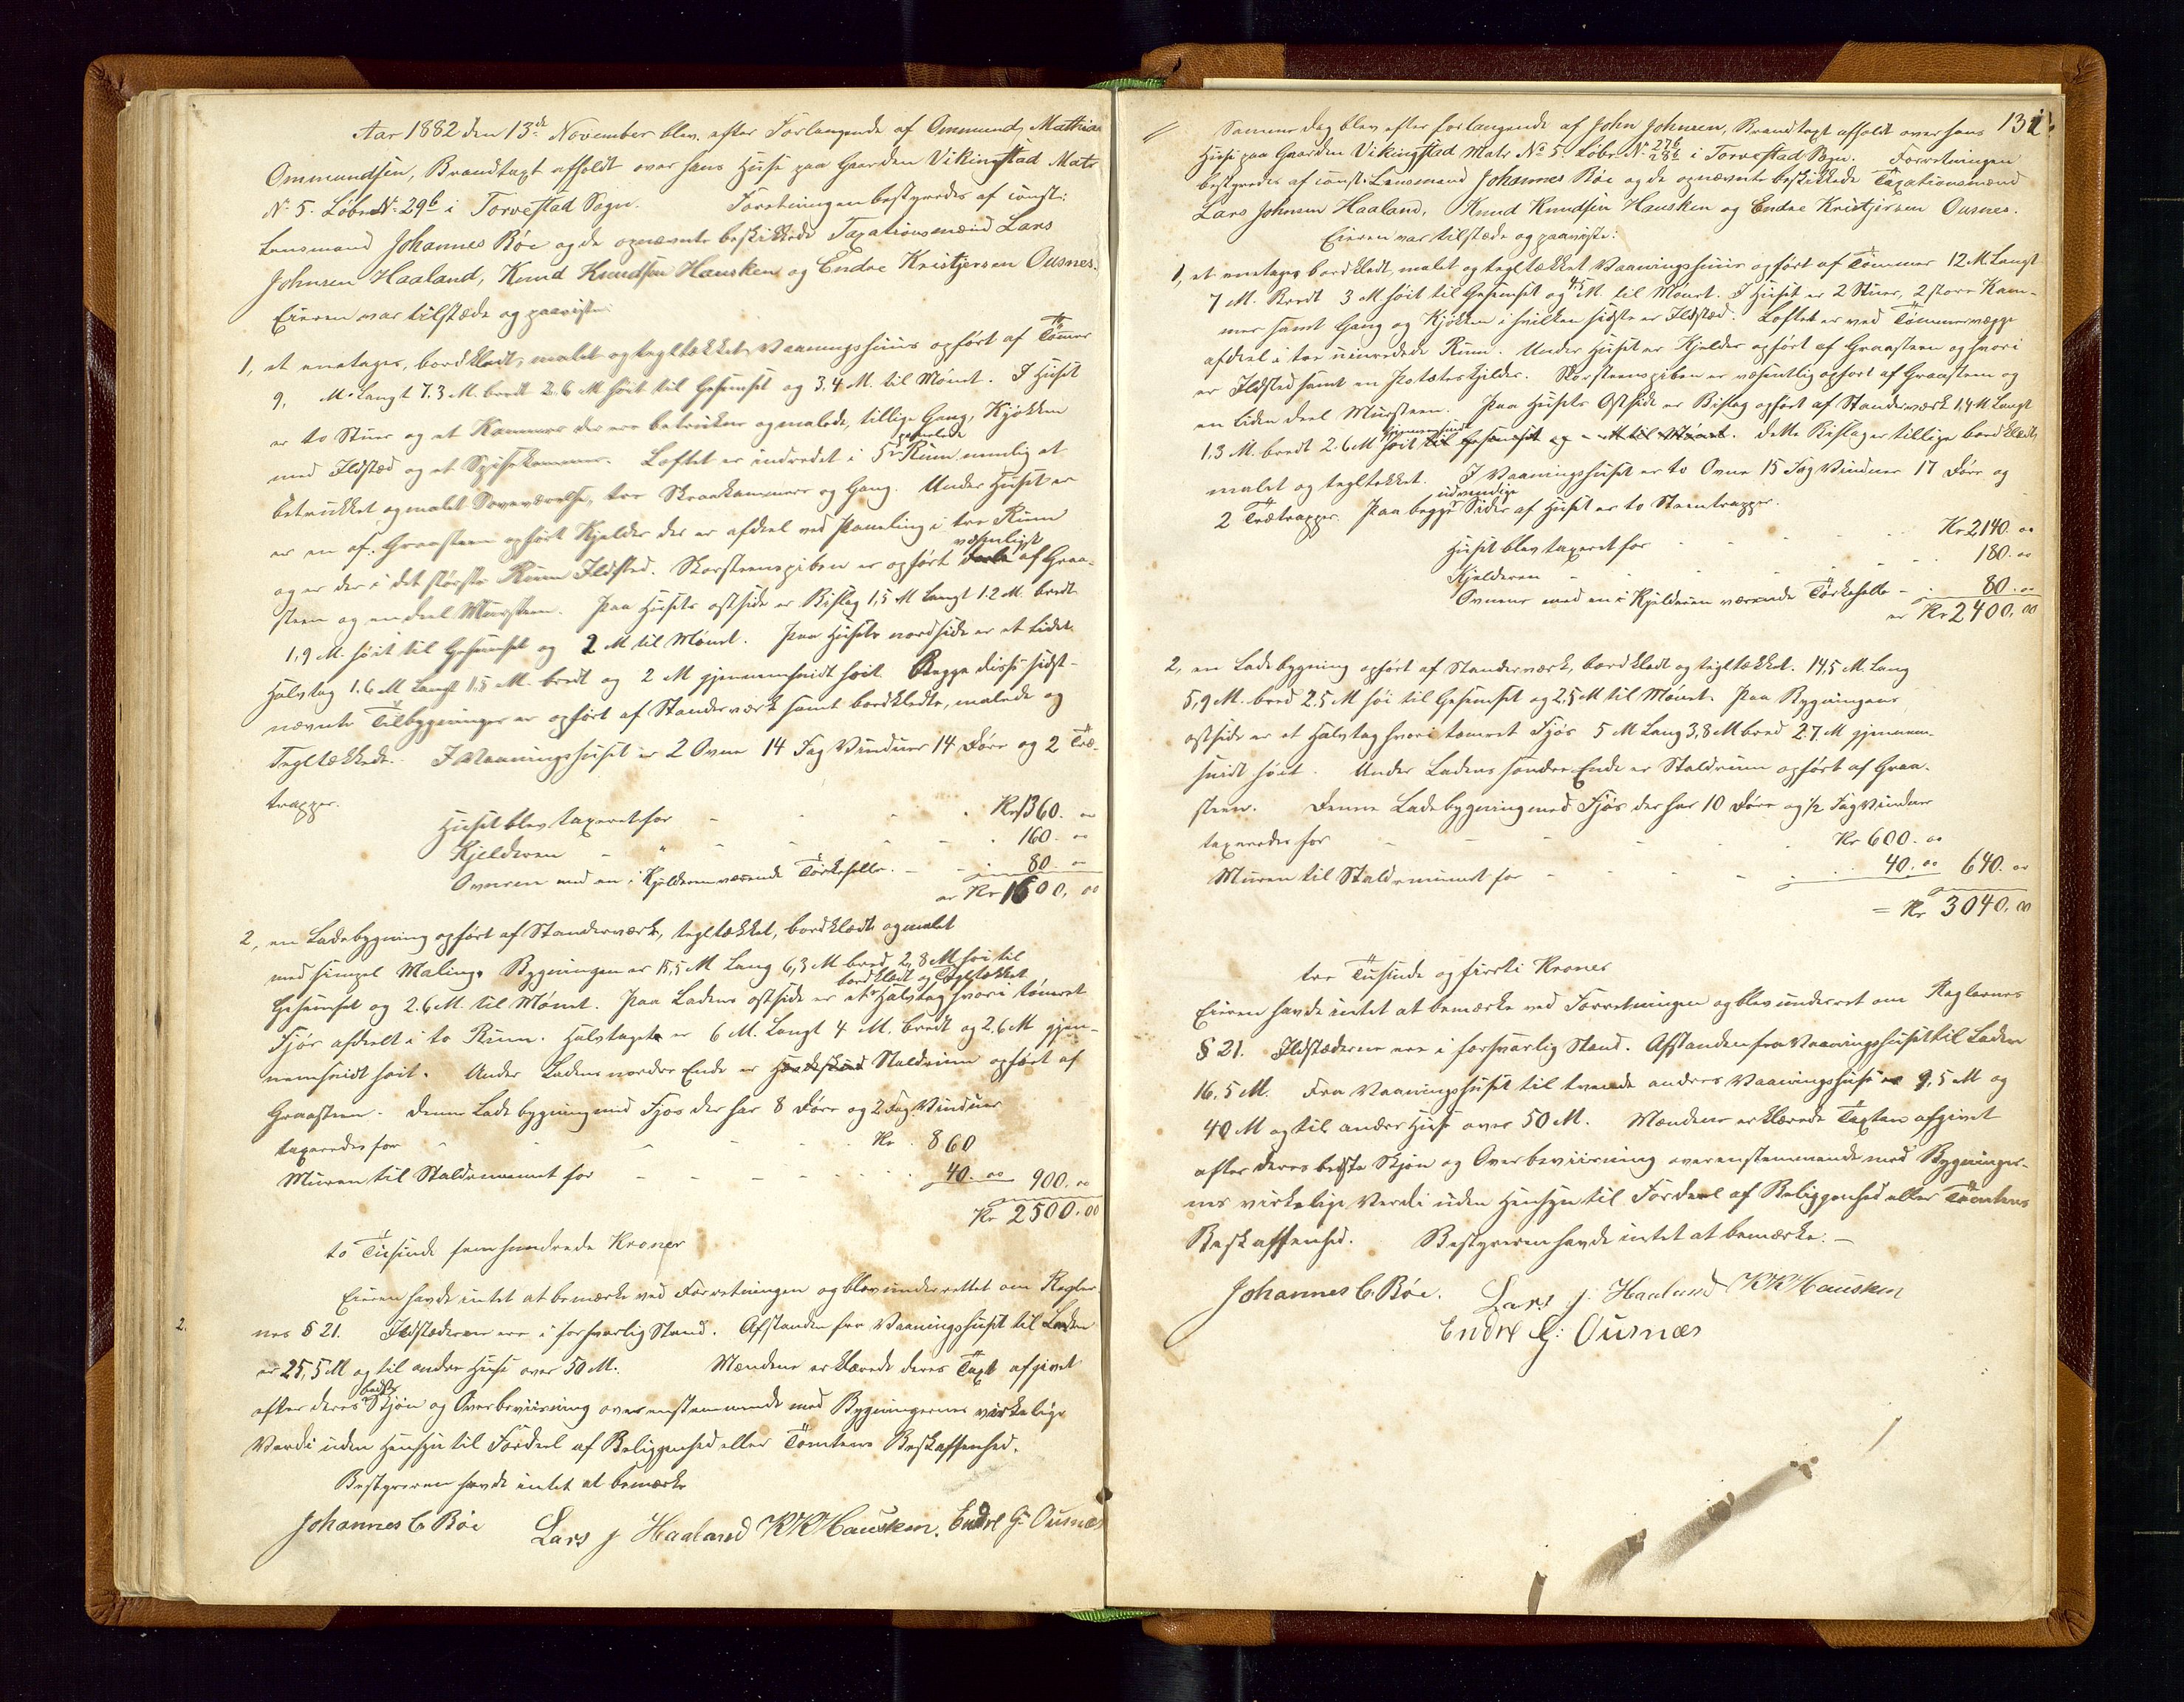 Aar 1882 den 13de November blev efter Forlangende af Ommund Mathias
Ommundsen, Brandtaxt afholdt over hans Huse paa Gaarden Vikingstad Matr
No 5. Løbe No 29b i Torvestad Sogn. Forretningen bestyredes af const:
Lensmand Johannes Bøe og de opnævnte beskikkede Taxationsmænd Lars
Johnsen Haaland, Knud Knudsen Hausken og Endre Kristjersen Ousnes.
Eieren var tilstæde og paaviste:
1, et enetages, bordklædt, malet og tegltækket Vaaningshuus opført af Tømer
9, M. Langt 7.3 M. bredt 2.6 M høit til Gesimset og 3.4 M. til Mønet. I Huset
er to Stuer og et Kammer der ere betrukne og malede, tillige Gang, Kjøkken
med Ildsted og et Spisekammer. Loftet er indredet i 5 Rum nemlig et
betrukket og malet Soveværelse, tre Skraakammere og Gang. Under Huset er
er en af Graasteen opført Kjelder der er afdeel ved Paneling i tre Rum
og er der i det største Rum Ildsted. Skorsteenspiben er opført væsentligst af Graa-
steen og en deel Mursteen. Paa Husets østside er Bislag 1,5 M Langt 1.2 M. bredt
1,9 M. høit til Gesimset og 2 M til Mønet. Paa Husets nordside er et lidet
Halvtag 1.6 M Langt 1,5 M. bredt og 2 M gjennemsnidt høit. Begge disse sidst-
nævnte Tilbygninger er opført af Standerværk samt bordklædte, malede og
Tegltækkede. I Vaaningshuset er 2 Ovne 14 Fag Vinduer 14 Døre og 2 Træ-
trapper.
Huset blev taxeret for Kr 1360. 00
Kjelderen 160. 00
Ovnene med en i Kjelderen værende Tørkehelle. 80. 00
er Kr 1600, 00
2, en Ladebygning opført af Standerværk, tegltækket, bordklædt og malet
med simpel Maling. Bygningen er 15,5 M Lang 6,3 M bred 2,8 M høi til
bordklædt og Tegltækket
Gesimset og 2.6 M. til Mønet. Paa Ladens østside er et Halvtag hvori tømret
Fjøs afdeelt i to Rum. Halvtaget er 6 M. Langt 4 M. bredt og 2.6 M gjen-
nemsnidt høit. Under Ladens nordre Ende er Staldrum opført af
Graasteen. Denne Ladebygning med Fjøs der har 8 Døre og 2 Fag Vinduer
taxeredes for Kr. 860
Muren til Staldrummet for 40. 00 900. 00
Kr 2500. 00
to Tusinde femhundrede Kroner
Eieren havde intet at bemærke ved Forretningen og blev underrettet om Regler
2.
nes § 21. Ildstæderne ere i forsvarlig Stand. Afstanden fra Vaaningshuset til Laden
er 25,5 M og til andre Huse over 50 M. Mændene erklærede deres Taxt afgivet
efter deres bedste Skjøn og Overbeviisning overenstemmende med Bygningernes virkelige
Værdi uden Hensyn til Fordeel af Beliggenhed eller Tomtens Beskaffenhed.
Bestyreren havde intet at bemærke
Johannes C. Bøe Lars J Haaland KKHausken. Endre G: Ousnæs
132.
Samme dag blev efter forlangende af John Johnsen, Brandtaxt afholdt over hans
Huse paa Gaarden Vikingstad Matr No 5. Løbe No 27b 28b i Torvestad Sogn. Forretningen
bestyredes af const: Lensmand Johannes Bøe og de opnævnte beskikkede Taxationsmænd
Lars Johnsen Haaland, Knud Knudsen Hausken og Endre Kristjersen Ousnes.
Eieren var tilstæde og paaviste:
1, et enetages bordklædt, malet og tegltækket Vaaningshuus opført af Tømmer 12 M. Langt
7 M. Bredt 3 M. høit til Gesimset og 4,5 M. til Mønet. I Huset er 2 Stuer, 2 store Kam-
mer samt Gang og Kjøkken i hvilken sidste er Ildsted. Loftet er ved Tømmervægge
afdeel i tre uinredede Rum. Under Huset er Kjelder opført af Graasteen og hvori
er Ildsted samt en Potæteskjelder. Skorsteenspiben er væsentlig opført af Graasteen og
en liden deel Mursteen. Paa Husets Østside er Bislag opført af Standerværk 1,4 M Langt
1,3 M. bredt 2.6 M gjennemsnidt høit til Gesimset og - M til Mønet. dette Bislag er tillige bordklædt,
malet og tegltækket. I Vaaningshuset er to Ovne 15 Fag Vinduer 17 Døre og
2 Trætrapper. Paa begge udvendige Sider af Huset er to Steentrapper.
Huset blev taxeret for Kr 2140. 00
Kjelderen 180. 00
Ovnene med en i Kjelderen værende Tørkehelle 80. 00
er Kr 2400, 00
2, en Ladebygning opført af Standerværk, bordklædt og tegltækket. 14,5 M. Lang
5,9 M. bred 2.5 M høi til Gesimset og 2,5 M til Mønet. Paa Bygningens
østside er et Halvtag hvori tømret Fjøs 5 M Lang 3,8 M bred 2.7 M gjennem-
snidt høit. Under Ladens søndre Ende er Staldrum opført af Graa-
steen. Denne Ladebygning med Fjøs der har 10 Døre og ½ Fag Vinduer
taxeredes for Kr 600. 00
Muren til Staldrummet for 40. 00 640. 00
= Kr 3040, 00
tre Tusinde og firti Kroner
Eieren havde intet at bemærke ved Forretningen og blev underret om Reglernes
§ 21. Ildstæderne ere i forsvarlig Stand. Afstanden fra Vaaningshuset til Laden
16.5 M. Fra Vaaningshuset til tvende andres Vaaningshuse er 9.5 M og
40 M og til andre Huse over 50 M. Mændene erklærede Taxten afgivet
efter deres bedste Skjøn og Overbeviisning overenstemmende med Bygninger-
nes virkelige Værdi uden Hensyn til Fordeel af Beliggenhed eller Tomtens
Beskaffenhed. Bestyreren havde intet at bemærke. —
Johannes C. Bøe. Lars J. Haaland KKHausken
Endre G: Ousnæs